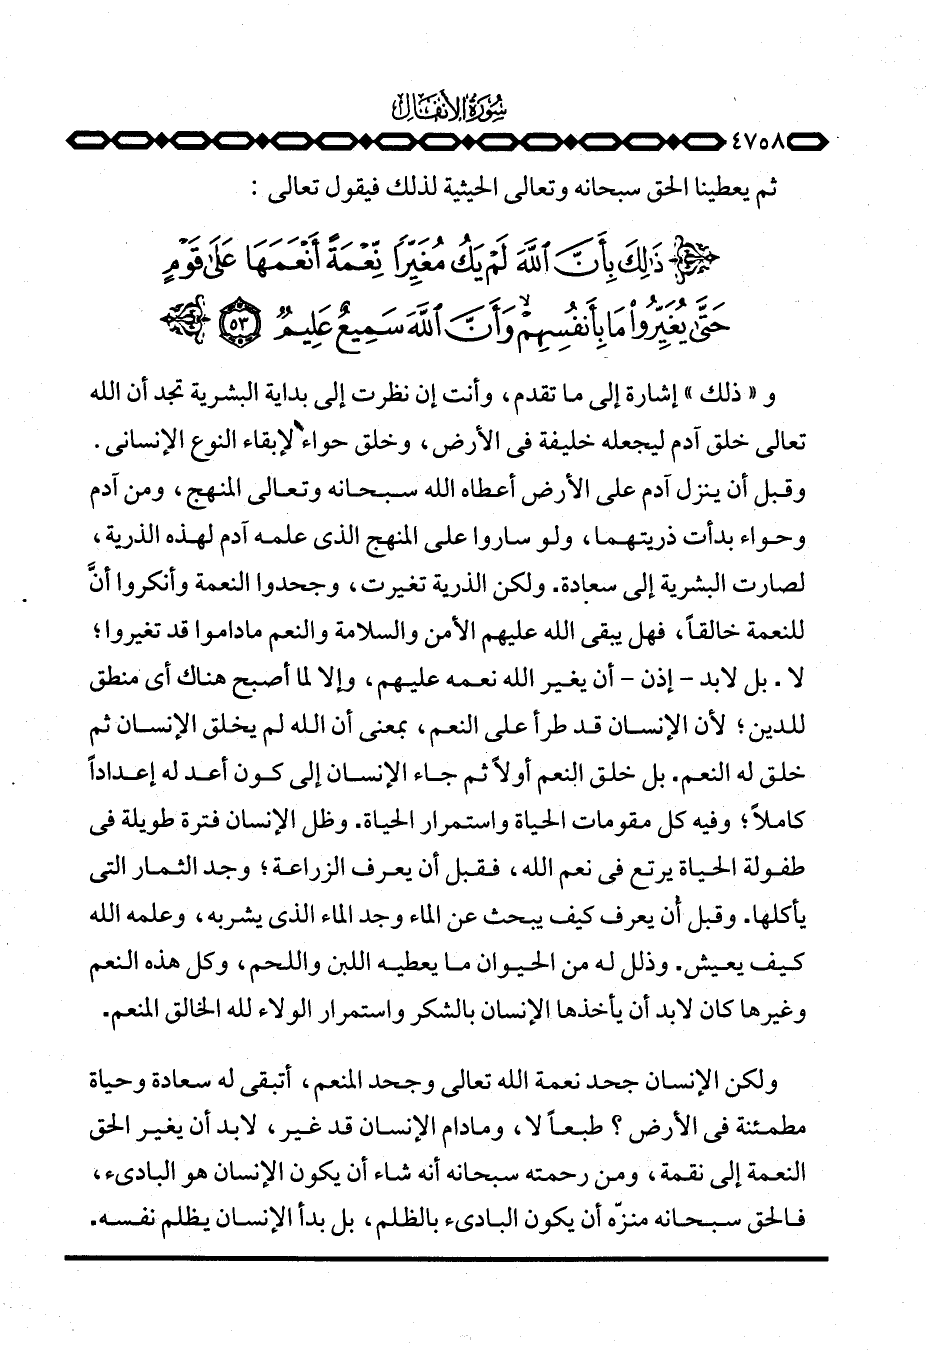 سورة الأنفال
٤٧٥٨
ثم يعطينا الحق سبحانه وتعالى الحيثية لذلك فيقول تعالى :
ذَٰلِكَ بِأَنَّ ٱللَّهَ لَمْ يَكُ مُغَيِّرًا نِّعْمَةً أَنْعَمَهَا عَلَىٰ قَوْمٍ
حَتَّىٰ يُغَيِّرُوا۟ مَا بِأَنفُسِهِمْ ۙ وَأَنَّ ٱللَّهَ سَمِيعٌ عَلِيمٌ ٥٣
و « ذلك » إشارة إلى ما تقدم ، وأنت إن نظرت إلى بداية البشرية تجد أن الله
تعالى خلق آدم ليجعله خليفة فى الأرض ، وخلق حواء لإبقاء النوع الإنسانى .
وقبل أن ينزل آدم على الأرض أعطاه الله سبحانه وتعالى المنهج ، ومن آدم
وحواء بدأت ذريتهما ، ولو ساروا على المنهج الذى علمه آدم لهذه الذرية ،
لصارت البشرية إلى سعادة. ولكن الذرية تغيرت ، وجحدوا النعمة وأنكروا أنَّ
للنعمة خالقاً ، فهل يبقى الله عليهم الأمن والسلامة والنعم ماداموا قد تغيروا ؛
لا . بل لابد - إذن - أن يغير الله نعمه عليهم ، وإلا لما أصبح هناك أى منطق
للدين ؛ لأن الإنسان قد طرأ على النعم ، بمعنى أن الله لم يخلق الإنسان ثم
خلق له النعم. بل خلق النعم أولاً ثم جاء الإنسان إلى كون أعد له إعداداً
كاملاً ؛ وفيه كل مقومات الحياة واستمرار الحياة. وظل الإنسان فترة طويلة فى
طفولة الحياة يرتع فى نعم الله ، فقبل أن يعرف الزراعة ؛ وجد الثمار التى
يأكلها. وقبل أن يعرف كيف يبحث عن الماء وجد الماء الذى يشربه ، وعلمه الله
كيف يعيش. وذلل له من الحيوان ما يعطيه اللبن واللحم ، وكل هذه النعم
وغيرها كان لابد أن يأخذها الإنسان بالشكر واستمرار الولاء لله الخالق المنعم.
ولكن الإنسان جحد نعمة الله تعالى وجحد المنعم ، أتبقى له سعادة وحياة
مطمئنة فى الأرض ؟ طبعاً لا ، ومادام الإنسان قد غير ، لابد أن يغير الحق
النعمة إلى نقمة ، ومن رحمته سبحانه أنه شاء أن يكون الإنسان هو البادىء ،
فالحق سبحانه منزّه أن يكون البادىء بالظلم ، بل بدأ الإنسان يظلم نفسه.